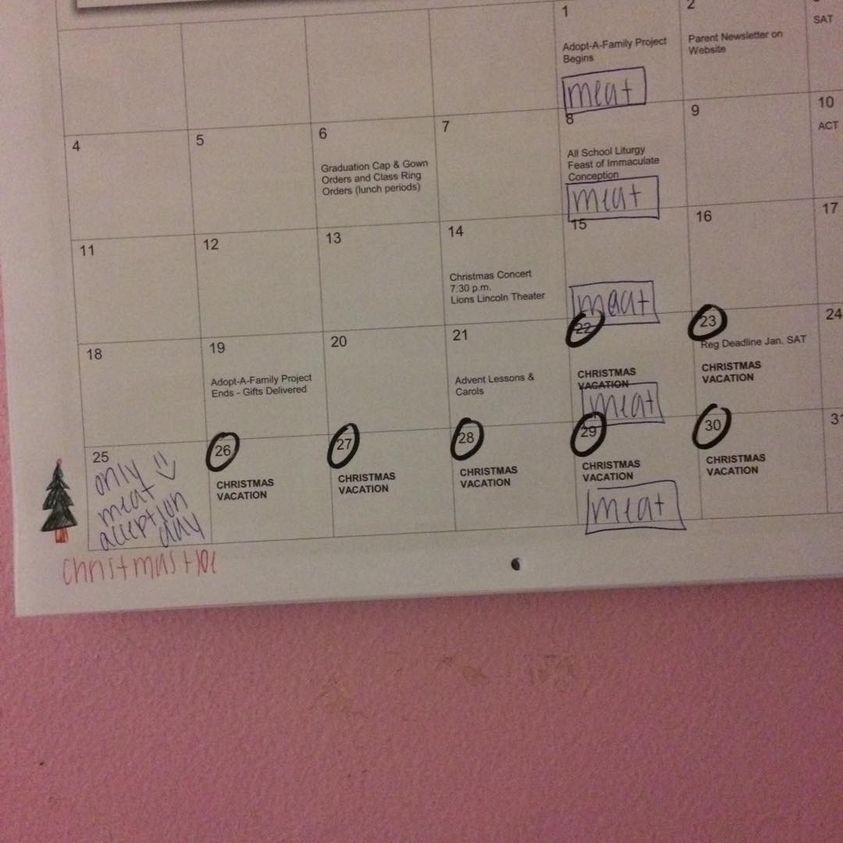 1
Adopt-A-Family Project
Begins
meat
2
Parent Newsletter on
Website
SAT
4
5
6
Graduation Cap & Gown
Orders and Class Ring
Orders (lunch periods)
7
8
All School Liturgy
Feast of Immaculate
Conception
meat
9
10
ACT
11
12
13
14
Christmas Concert
7:30 p.m.
Lions Lincoln Theater
15
meat
16
17
18
19
Adopt-A-Family Project
Ends - Gifts Delivered
20
21
Advent Lessons &
Carols
22
CHRISTMAS
VACATION
meat
23
Reg Deadline Jan. SAT
CHRISTMAS
VACATION
24
25
only
meat
acception
day
26
CHRISTMAS
VACATION
27
CHRISTMAS
VACATION
28
CHRISTMAS
VACATION
29
CHRISTMAS
VACATION
meat
30
CHRISTMAS
VACATION
christmas